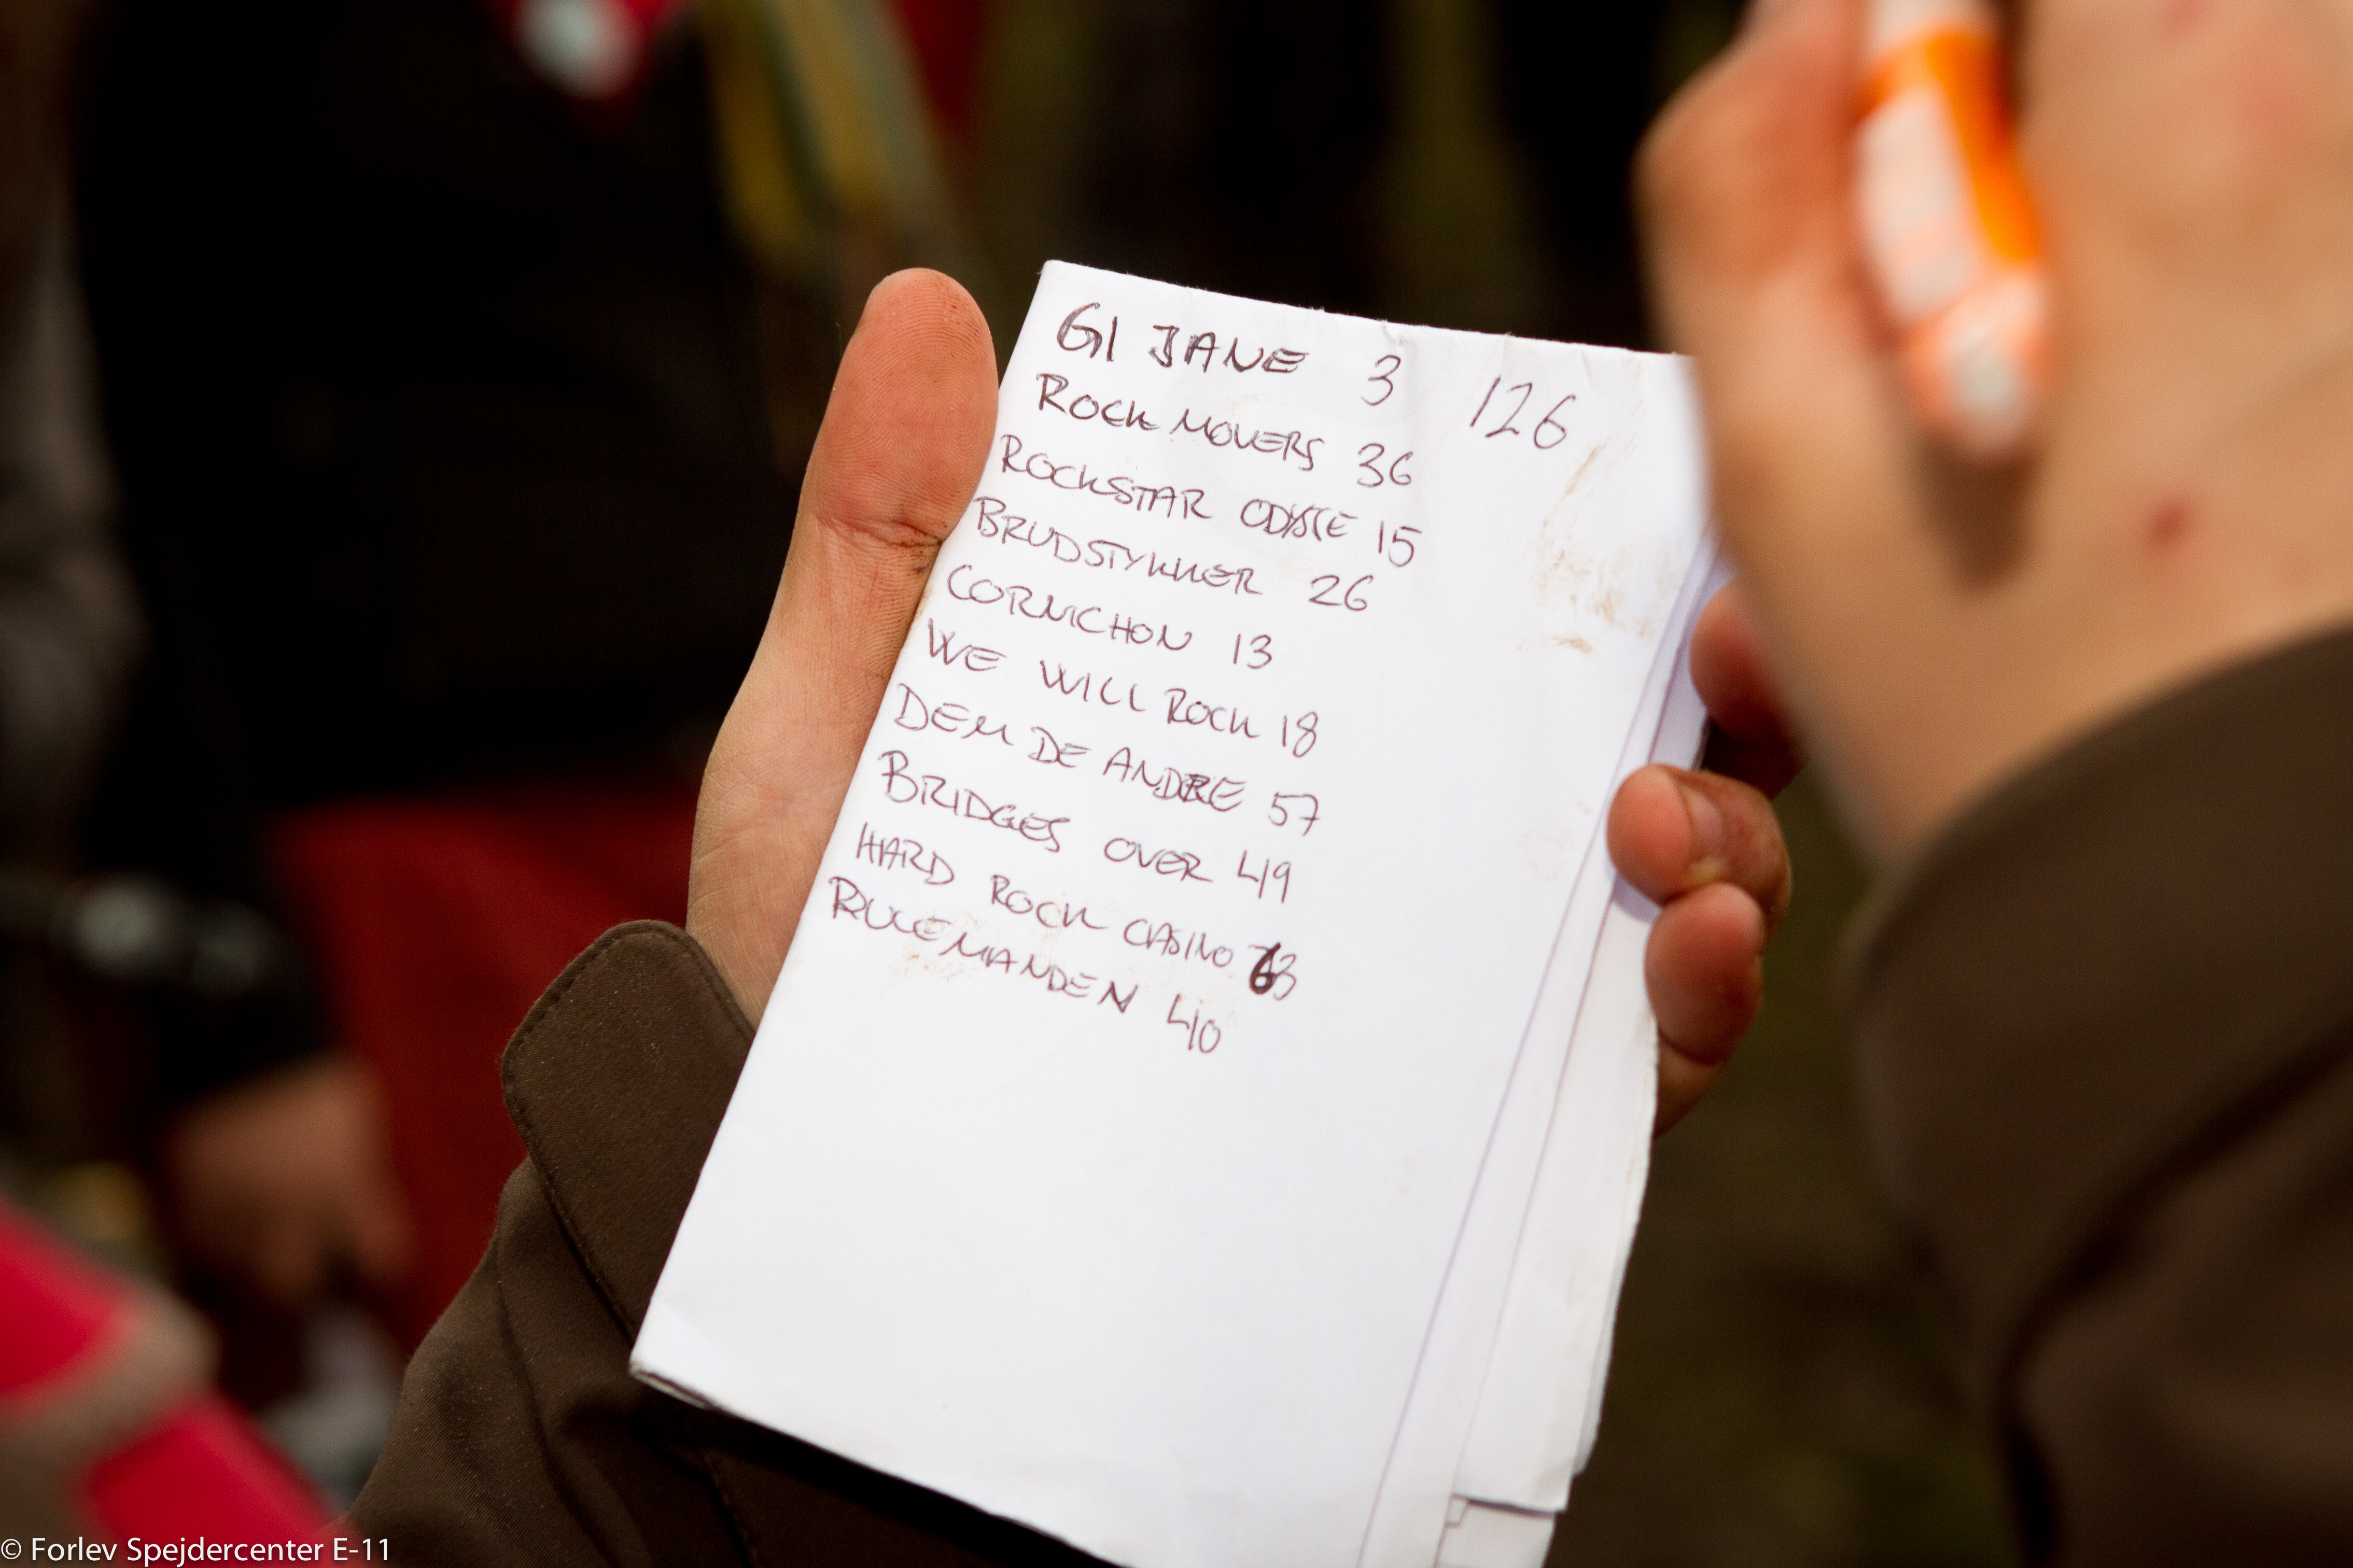 GI JANE 3 126
ROCK MOVERS 36
ROCKSTAR 15
BRUDSTYKKER 26
CORNICHON 13
WE WILL ROCK 18
DEM DE ANDRE 57
BRIDGES OVER 49
HARD ROCK CASINO 63
RULLEMANDEN 40
© Forlev Spejdercenter E-11